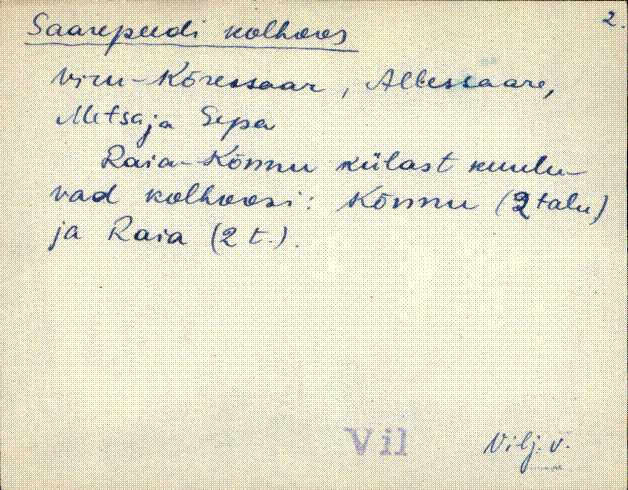 Saarepeedi kolhoos
2.
Viru-Kõressaar, Allessaare,
Metsa ja Sepa
Raia-Kõnnu külast kuulu-
vad kolhoosi: Kõnnu (2 talu)
ja Raia (2 t.).
Vil
Vilj. v.